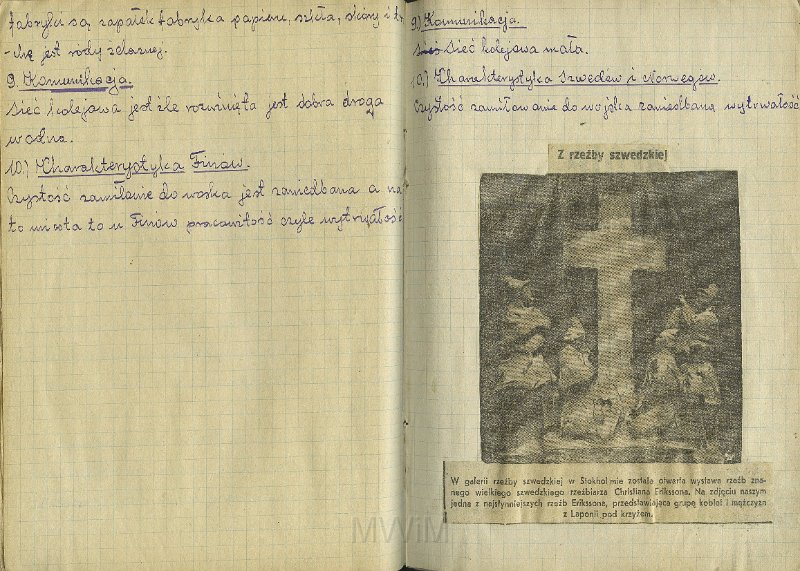 fabryki są zapałek fabryka papieru, szkła, skóry i
- chę jest rody żelaznej.
9. Komunikacja.
Sieć kolejowa jest źle rozwinięta jest dobra droga
wodna.
10.) Charakterystyka Finów.
Czystość zamiłanie do woska jest zaniedbana a na
to miasta to u Finów pracowitość czyle wytrzałość
9) Komunikacja.
Sieć kolejowa mała.
10.) Charakterystyka Szwedów i Norwegów.
Czystość zamiłowanie do wojska zaniedbaną wytrwałość
Z rzeźby szwedzkiej
W galerii rzeźby szwedzkiej w Stokholmie została otwarta wystawa rzeźb zna-
nego wielkiego szwedzkiego rzeźbiarza Christiana Erikssona. Na zdjęciu naszym
jedna z najsłynniejszych rzeźb Erikssona, przedstawiająca grupę kobiet i mężczyzn
z Laponii pod krzyżem.
MWiM